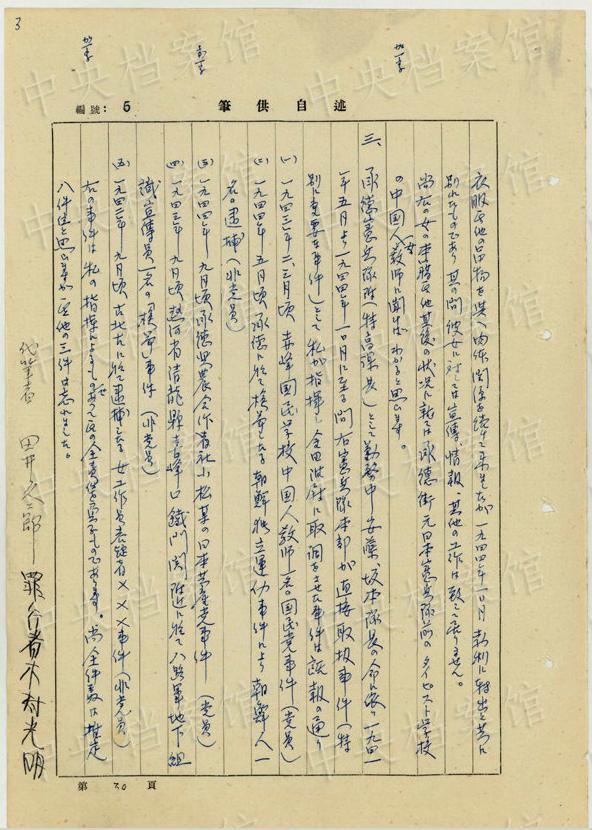 3
編號: 5
筆供自述
衣服其他の品物を與へ肉体関係を続けて来ましたが一九四四年一〇月 新制に轉出と共に
別れたものであり 其の間彼女に対しては宣傳、情報、其他の工作は致して居りません。
尚右の女の素質其他其後の状況に就ては承徳街元日本憲兵隊前のタイピスト学校
の中国人女教師に聞けばわかると思ひます。
三、承徳憲兵隊附(特高課長)として勤務中安藤、坂本隊長の命に依り一九四一
年五月より一九四四年一〇月に至る間 右憲兵隊本部が直接取扱事件(特
別に重要な事件)として私が指揮し 金田准尉に取調をさせた事件は既報の通り
(一) 一九四三年二、三月頃 赤峰國民学校中国人教師一名の国民党事件(党員)
(二) 一九四四年五月頃承徳に於て検挙したる朝鮮独立運動事件により朝鮮人一
名の逮捕(非党員)
(三) 一九四四年九月頃承徳県農合作社小松某の日本共産党事件(党員)
(四) 一九四三年九月頃熱河省青龍縣喜峰口鐵門関附近に於て八路軍地下組
織宣傳員一名の検挙事件(非党員)
(五) 一九四三年九月頃古北口に於て逮捕したる女工作員表迎者×××事件(非党員)
右の事件は私の指揮によるものであって其の全責任を負ふものであります。尚全件数は推定
八件位と思ひますが其他の三件は忘れました。
代筆者 田井久二郎 罪行者木村光明
第 30 頁
中央档案馆